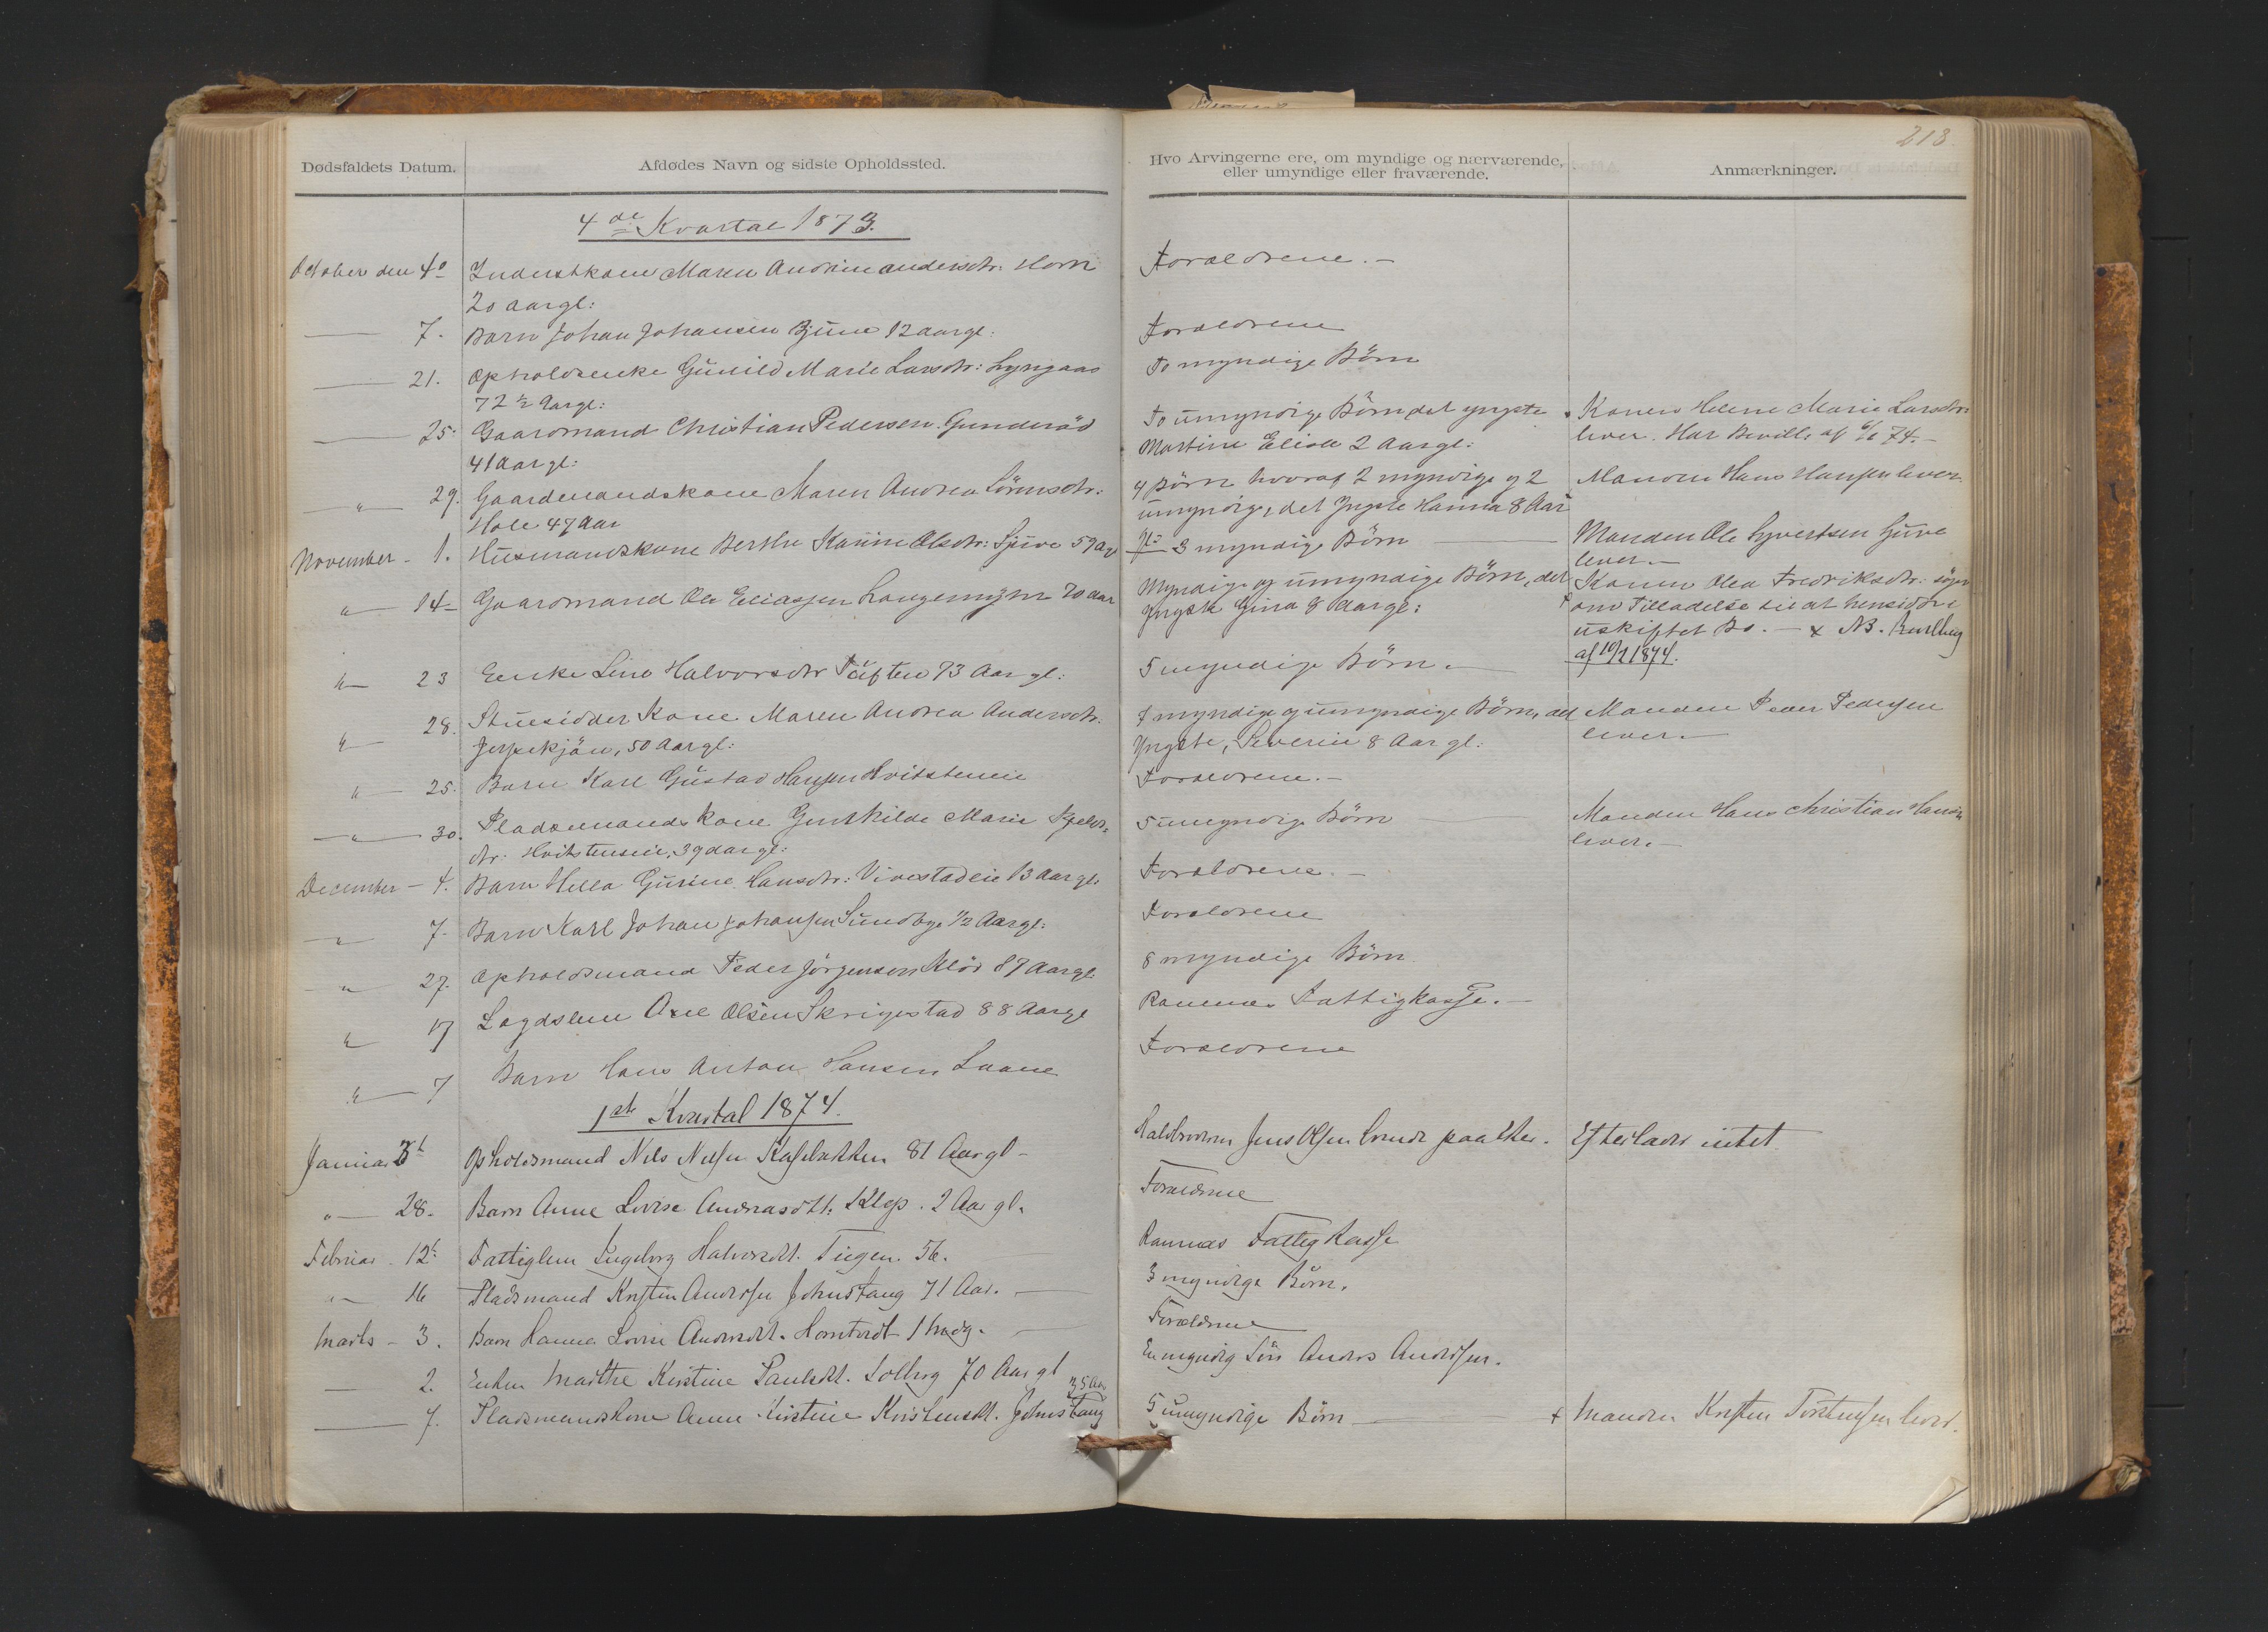 213
Dødsfaldets Datum.
Afdødes Navn og sidste Opholdssted.
4de Kvartal 1873.
October den 4de Inderstkone Maren Andrine Andersdtr. Horn
20 aargl:
7. Barn Johan Johansen Bjune 12 aargl:
21. Opholdsenke Gunild Marie Larsdtr: Lyngaas
72 ½ Aargl:
25. Gaardmand Christian Pedersen Gunderöd
41 Aargl:
" 29. Gaardmandskone Maren Andrea Sörensdtr:
Hole 47 Aar
November - 1. Husmandskone Berthe Karine Olsdtr: Gjuve 59 Aar
" 14 Gaardmand Ole Eliassen Langemyhr 70 Aar
" 23 Enke Line Halvorsdtr Töiften 73 Aar gl:
" 28. Stuesidder Kone Maren Andrea Andersdtr.
50 Aargl:
" 25. Barn Karl Gustav Hansen Hvitsteneie
" 30. Pladsemandskone Gunhilde Marie
dtr: Hvitsteneie, 39 Aargl:
December - 4. Barn Hella Gurine Hansdtr: Vivestadeie 13 Aargl.
" 7. Barn Karl Johan Johansen Sundbye ½ Aargl:
" 27. Opholdsmand Peder Jörgensen Klöd 87 Aargl.
" 17 Lægdslem Axel Olsen Skrigestad 88 Aargl
" 7 Barn Hans Anton Hansen Laane
1ste Kvartal 1874.
Januar Opholdsmand Nils Nilsen 81 Aar gl-
" 28. Barn Anne Lovise Andreasdtt. Klop. 2 Aar gl.
Februar 12te Fattiglem Ingeborg Halvorsdtt. Tiegen. 56.
" 16 Pladsmand Kristen Andersen Johnstang 71 Aar.
Marts - 3. Barn Hanna Lovise Andersdtt. Horntvedt 1 Mdg.
2. Enken Marthe Kirstine Paulsdtt. Solberg 70 Aar gl
7. Pladsmandskone Anne Kirstine Kristensdtt. Johnstang 35 Aar
Hvo Arvingerne ere, om myndige og nærværende,
eller umyndige eller fraværende.
Anmærkninger.
Forældrene.-
Forældrene
To myndige Börn
To umyndige Börn det yngste
Martine Elise 2 Aargl:
Konen Helene Marie Larsdtr:
lever. Har Bevill. af 74.-
4 Börn hvoraf 2 myndige og 2
umyndige, det Yngste Hanna 8 Aar
Manden Hans Hansen lever
3 myndige Börn
Manden Ole Syvertsen Gjuve
lever.-
Myndige og umyndige Börn, det
Yngste Gina 8 Aargl:
Konen Olea Fredriksdtr: söger
om Tilladelse til at hensidde i
uskiftet Bo. - x NB. Bevilling
af 10/2 1874.
5 myndige Börn.
7 myndige og umyndige Börn, det
Yngste, Severin 8 Aar gl:
Manden Peder Pedersen
lever.-
Forældrene.-
5 umyndige Börn
Manden Hans Christian Hansen
lever.-
Forældrene.-
Forældrene
8 myndige Börn
Ramnes Fattigkasse.-
Forældrene
Halvbroderen Jens Olsen paa Eker.
Efterlader intet
Forældrene
Ramnes Fattig Kasse
3 myndige Börn.
Forældrene
En myndig Sön Anders Andersen.
5 umyndige Börn
x Manden Kristen Torstensen lever.